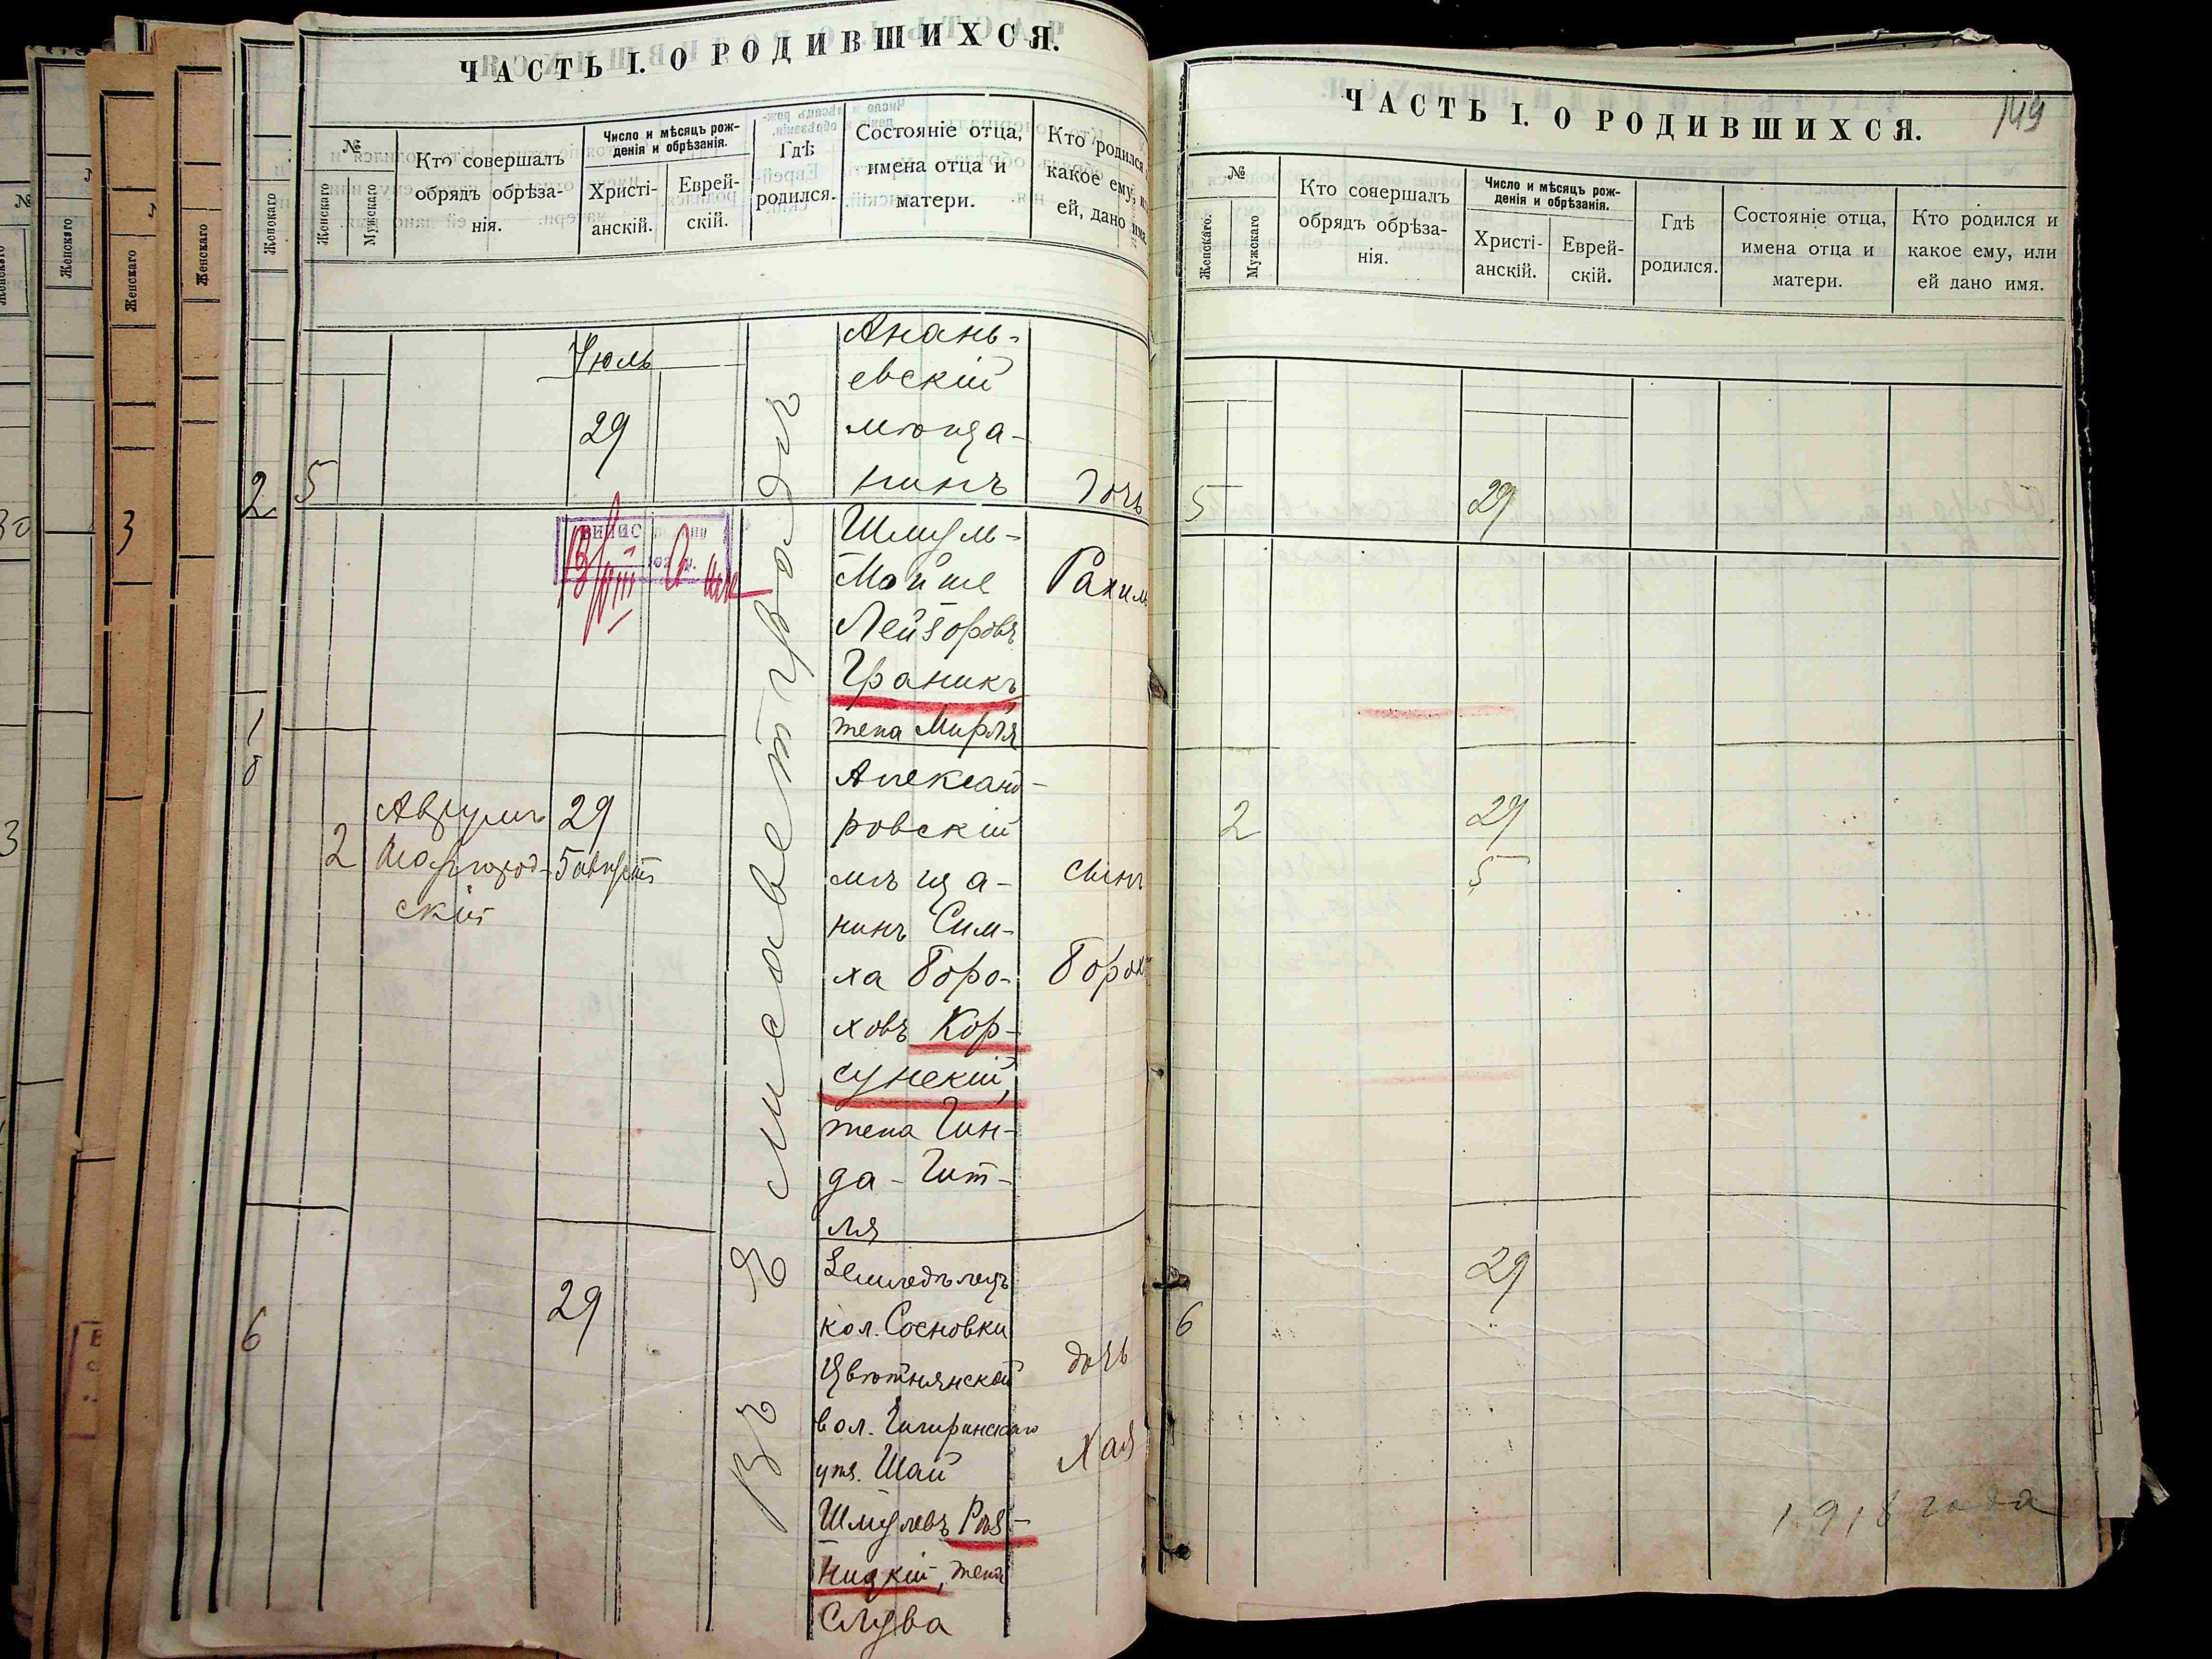 ЧАСТЬ I. О РОДИВШИХСЯ.
№
Женскаго
Мужскаго
Кто совершалъ
обрядъ обрѣза-
нія.
Число и мѣсяцъ рож-
денія и обрѣзанія.
Христі-
анскій.
Еврей-
скій.
Гдѣ
родился.
Состояніе отца,
имена отца и
матери.
Кто родился
какое ему,
ей, дано имя
Іюль
29
5
Въ Елисаветградѣ
Анань-
евскій
мѣща-
нинъ
Шмуль-
Мойше
Лейзоровъ
Граникъ,
жена Мирля
дочь
Рахиль
2
Аврумъ
Шаргород-
скій
29
5 августъ
Александ-
ровскій
мѣща-
нинъ Сим-
ха Боро-
ховъ Кор-
сунскій,
жена Гин-
да-Гит-
ля
сынъ
Борох
6
29
Земледѣлецъ
кол. Сосновки
Цвѣтнянской
вол. Чигиринскаго
уѣз. Шай
Шмулевъ Рѣз-
ницкій, жена
Слува
дочь
Хая
ЧАСТЬ I. О РОДИВШИХСЯ.
149
№
Женскаго.
Мужскаго
Кто совершалъ
обрядъ обрѣза-
нія.
Число и мѣсяцъ рож-
денія и обрѣзанія.
Христі-
анскій.
Еврей-
скій.
Гдѣ
родился.
Состояніе отца,
имена отца и
матери.
Кто родился и
какое ему, или
ей дано имя.
5
29
2
29
5
29
6
1918 года